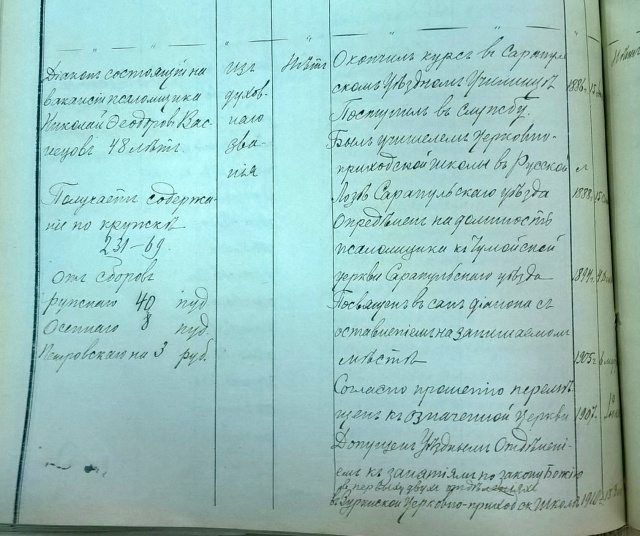 Діаконъ состоящій на
вакансіи псаломщика
Николай Ѳеодоровъ Вас-
нецовъ 48 лѣтъ.
Получаетъ содержа-
нія по кружкѣ
231-69.
Отъ сборовъ
40 пуд.
Осенняго 8 пуд.
Петровскаго на 3 руб.
изъ
духов-
наго
зва-
нія
Нѣтъ
Окончилъ курсъ въ Сарапуль
скомъ Уѣздномъ Училищѣ 1886 г. 15
Поступилъ въ службу.
Былъ учителемъ Церковно-
приходской школы въ Русской
Лозѣ Сарапульскаго уѣзда 1888
Опредѣленъ на должность
псаломщика къ
церкви Сарапульскаго уѣзда 1894 г.
Посвященъ въ санъ діакона съ
оставленіемъ на занимаемомъ
мѣстѣ 1905 г. 6
Согласно прошенію перемѣ
щенъ къ означенной церкви 1907 г. 10
Допущенъ Уѣзднымъ Отдѣлені-
емъ къ занятіямъ по закону Божію
въ первыхъ двухъ отдѣленіяхъ
въ Церковно-приходск. Школѣ 1910